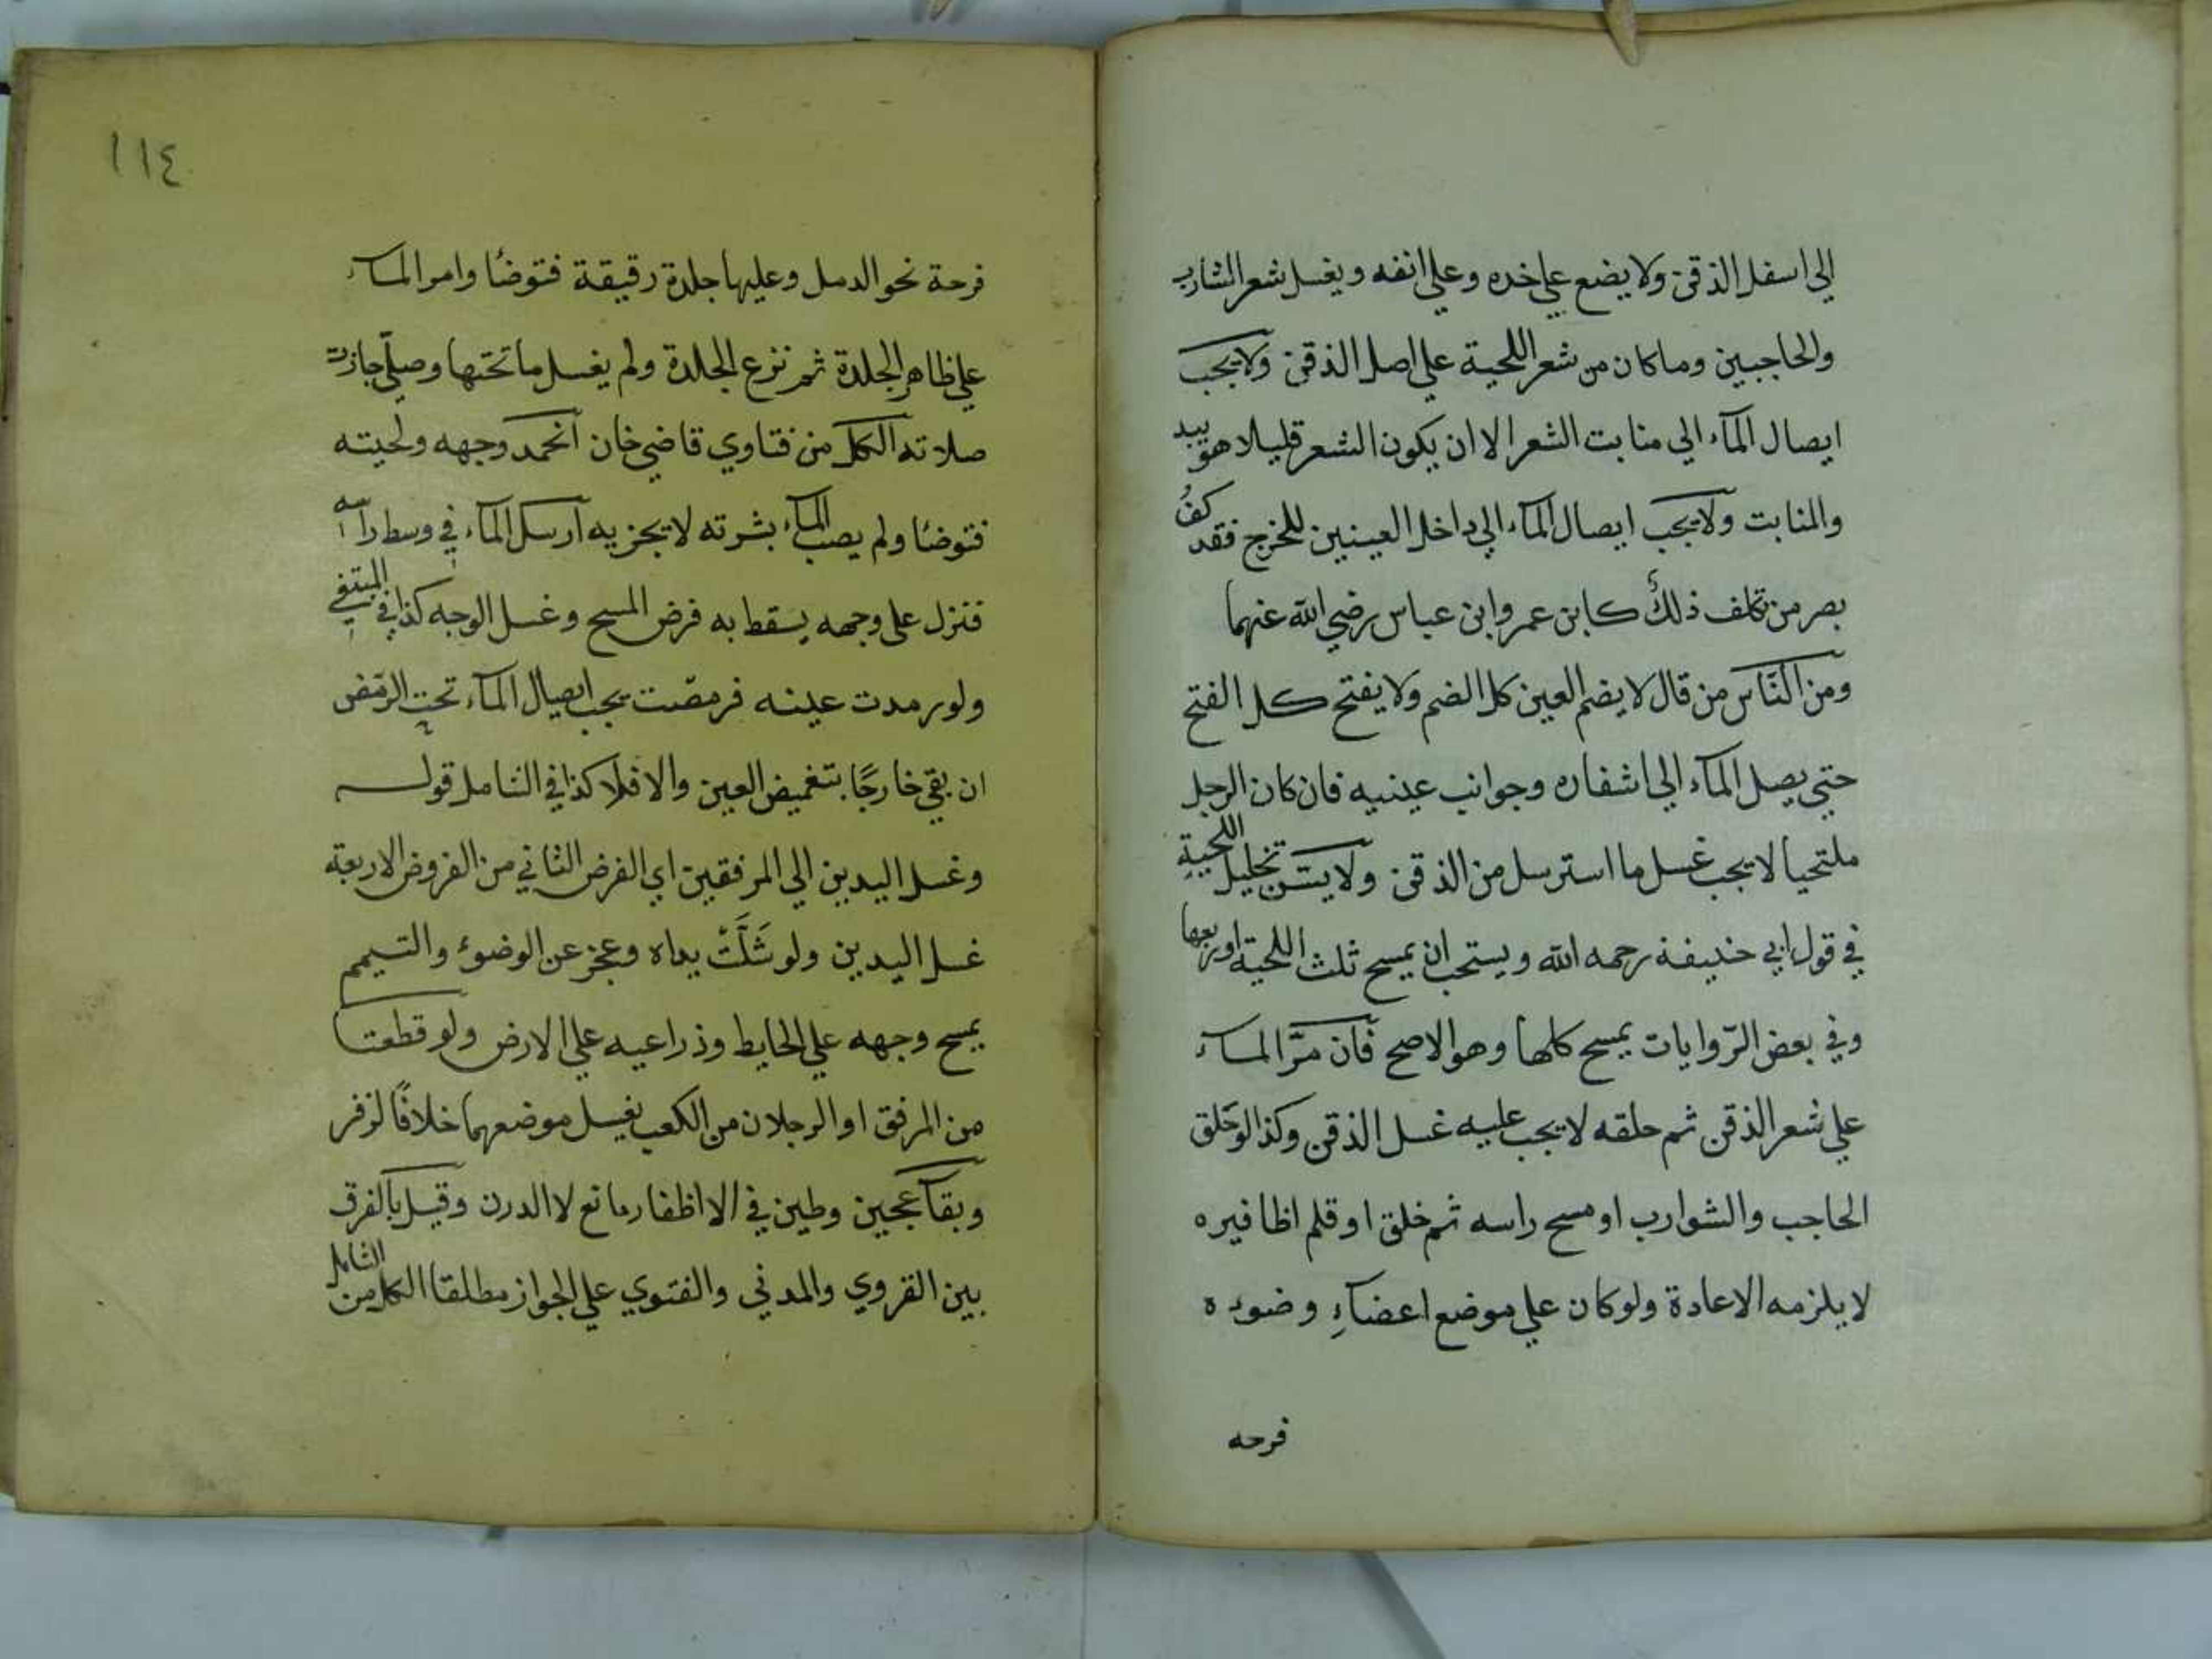 الي اسفل الذقن ولا يضع علي خده وعلي انفه ويغسل شعر الشارب
والحاجبين وما كان من شعر اللحية علي اصل الذقن ولا يجب
ايصال المآء الي منابت الشعر الا ان يكون الشعر قليلا هو يبد
والمنابت ولا يجب ايصال المآء الي داخل العينين للخرج فقد كف
بصر من تكلف ذلك كابن عمر وابن عباس رضي الله عنهما
ومن النّاس من قال لا يضم العين كل الضم ولا يفتح كل الفتح
حتي يصل المآء الي اشفاره وجوانب عينيه فان كان الرجل
ملتحيا لا يجب غسل ما استرسل من الذقن ولا يسن تخليل اللحية
في قول ابي حنيفة رحمه الله ويستحب ان يمسح ثلث اللحية او ربعها
وفي بعض الرّوايات يمسح كلها وهو الاصح فان مرَّ المآء
علي شعر الذقن ثم حلقه لا يجب عليه غسل الذقن وكذا لو حلق
الحاجب والشوارب او مسح راسه ثم خلق او قلم اظافيره
لا يلزمه الاعادة ولو كان علي موضع اعضآءِ وضوءه
فرحه
١١٤
فرحة نحو الدمل وعليها جلدة رقيقة فتوضأ وامر المآء
علي ظاهر الجلدة ثم نزع الجلدة ولم يغسل ما تحتها وصلّي جازت
صلاته الكل من فتاوي قاضي خان انحمد وجهه ولحيته
فتوضأ ولم يصب المآء بشرته لا يجزيه ارسل المآء في وسط راسه
فنزل علي وجهه يسقط به فرض المسح وغسل الوجه كذا في المبتغي
ولو رمدت عينه فرمصت يجب ايصال المآء تحت الرمص
ان بقي خارجًا بتغميض العين والا فلا كذا في الشامل قوله
وغسل اليدين الي المرفقين اي الفرض الثاني من الفروض الاربعة
غسل اليدين ولو شَلَّتْ يداه وعجز عن الوضوء والتيمم
يمسح وجهه علي الحايط وذراعيه علي الارض ولو قطعتا
من المرفق او الرجلان من الكعب يغسل موضعهما خلافًا لزفر
وبقآ عجين وطين في الاظفار مانع لا الدرن وقيل بالفرق
بين القروي والمدني والفتوي علي الجواز مطلقا الكل من الشامل